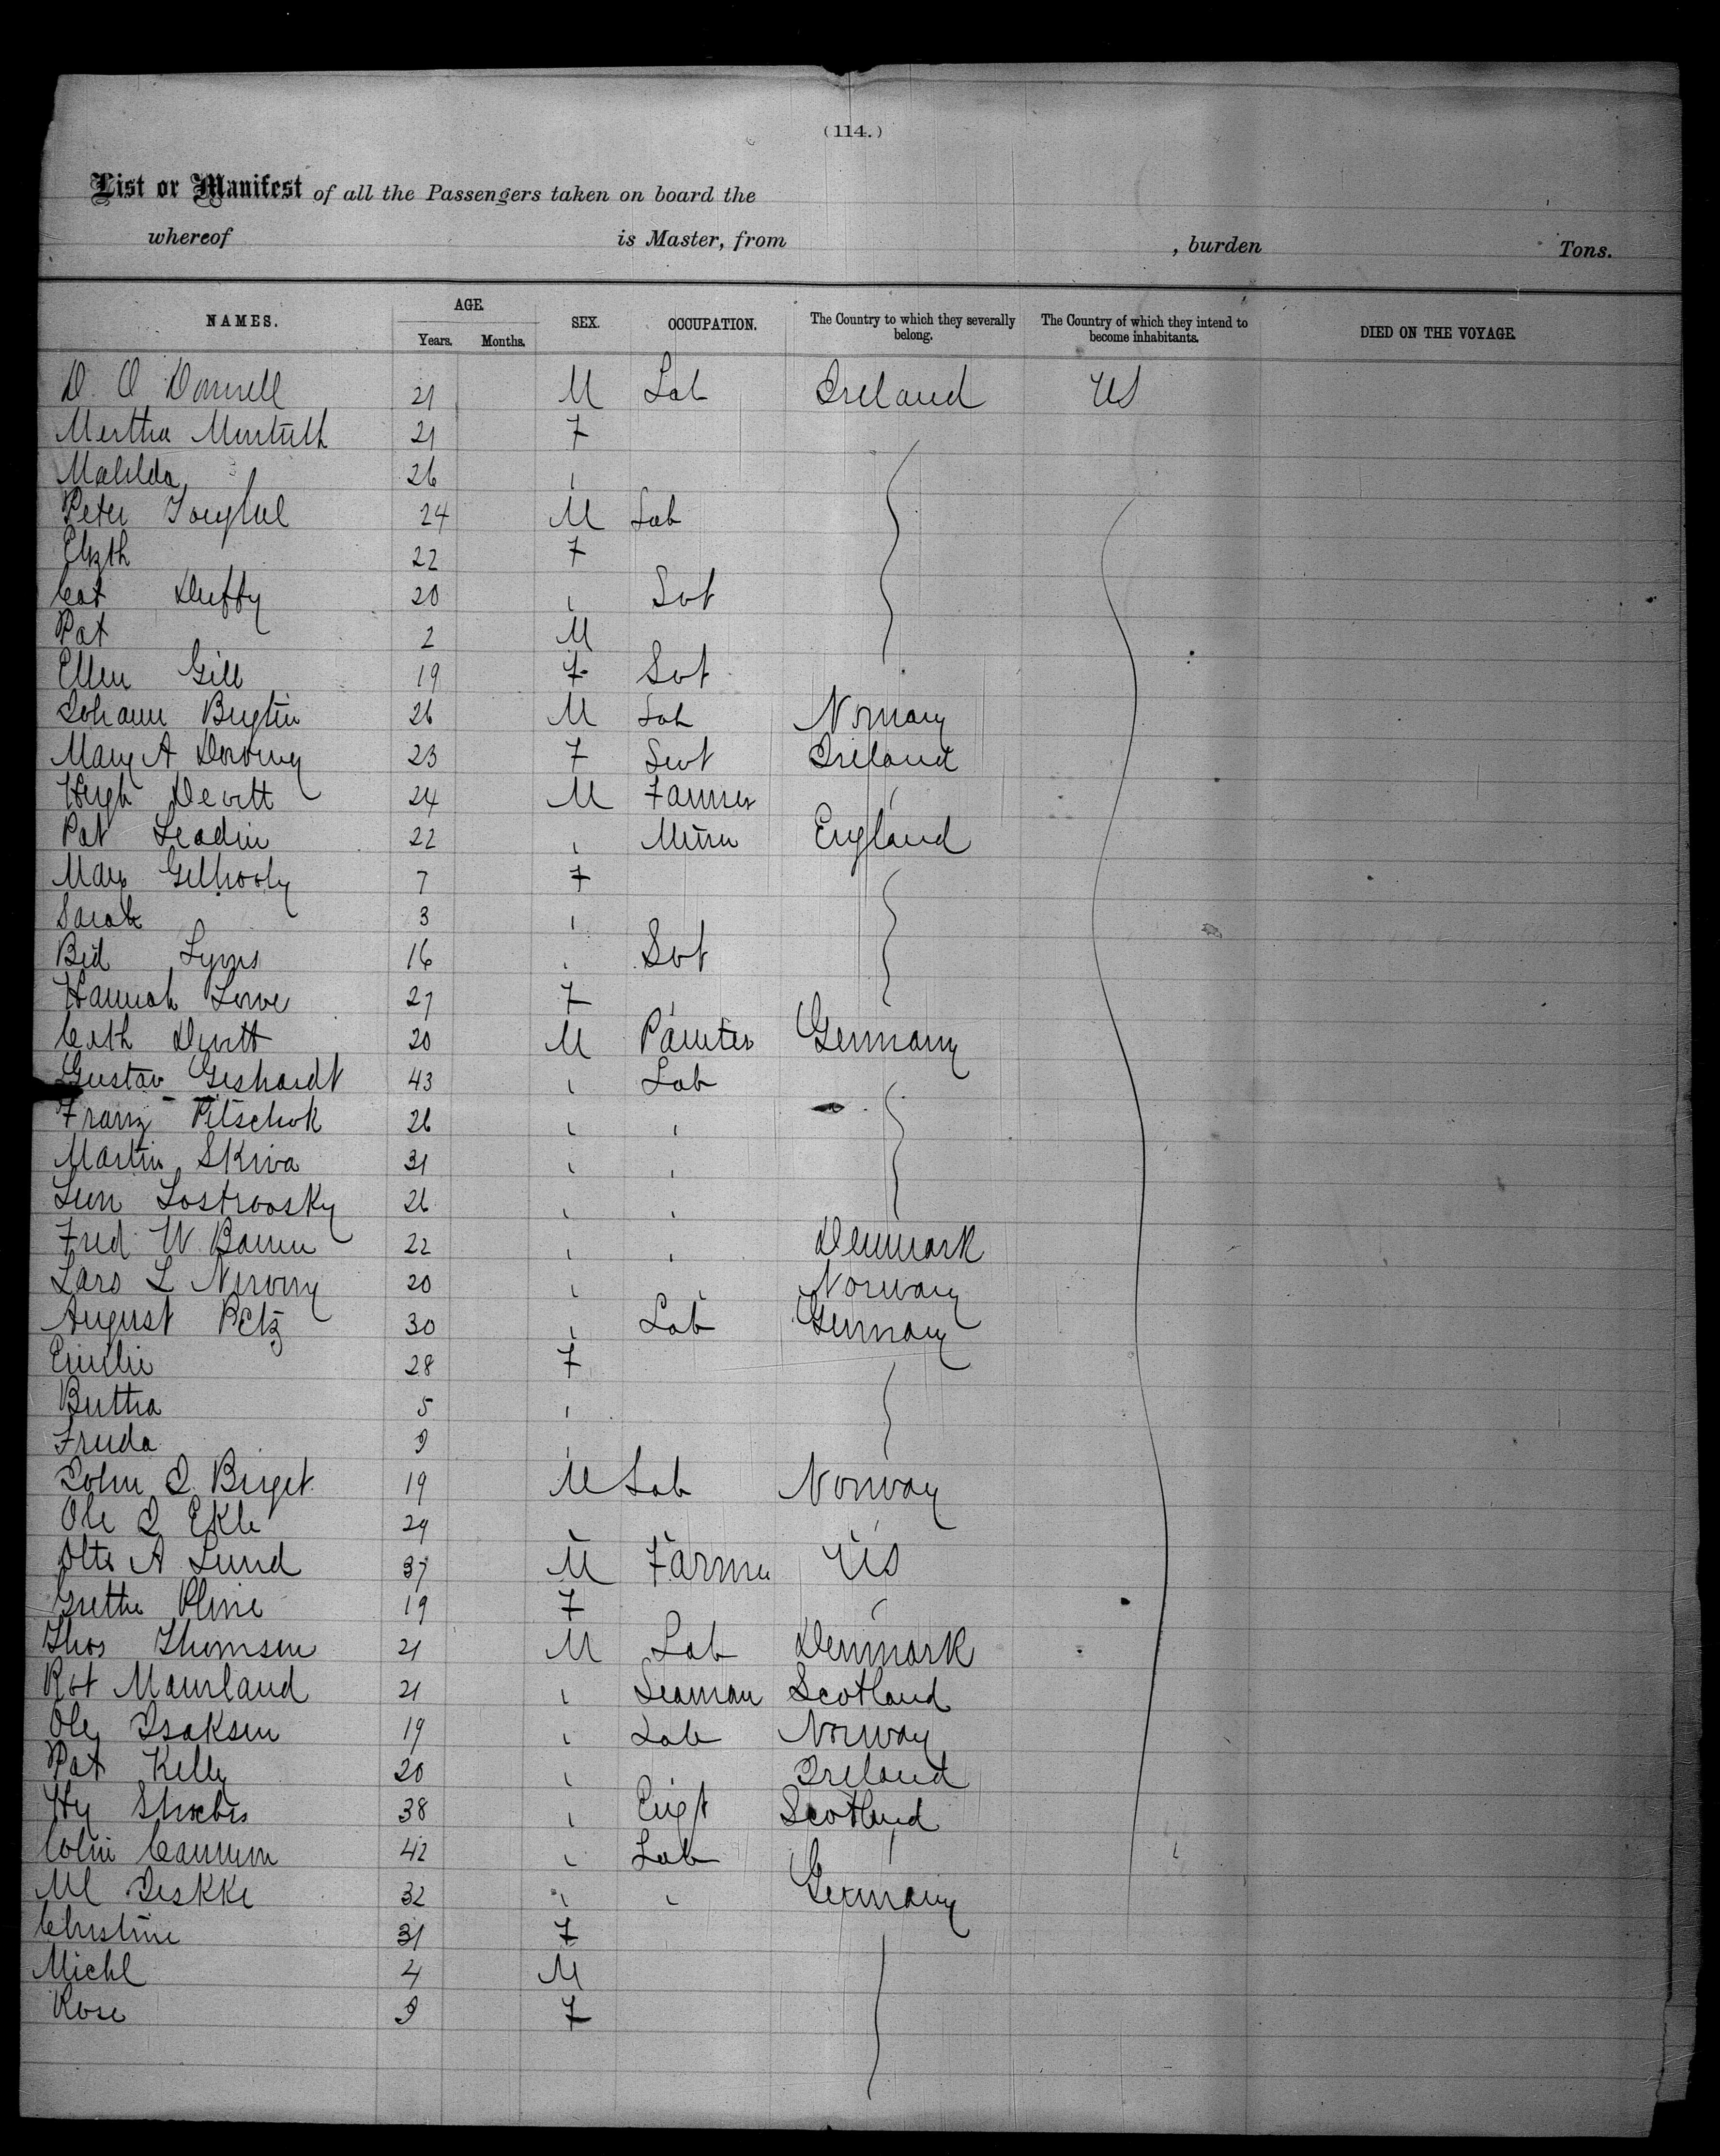 (114.)
List or Manifest of all the Passengers taken on board the
whereof is Master, from , burden Tons.
NAMES. AGE. SEX. OCCUPATION. The Country to which they severally belong. The Country of which they intend to become inhabitants. DIED ON THE VOYAGE.
Years. Months.
D. O Donnell 21 M Lab Ireland US
Martha 21 F
Matilda 26 "
Peter 24 M Lab
Elizth 22 F
Cat Duffy 20 " Svt
Pat 2 M
Ellen Gill 19 F Svt
Johann 26 M Lab Norway
Mary A 23 F Svt Ireland
Hugh Devitt 24 M Farmer "
Pat Leadin 22 " Miner England
Mary Gilhooly 7 F
Sarah 3 "
Bid Lyons 16 " Svt
Hannah Lowe 27 F "
Cath Devitt 20 M Painter Germany
Gustav Geshardt 43 " Lab
Franz Pitschok 26 " "
Martin Skiva 31 " "
Lostrowsky 26 " "
Fred W 22 " " Denmark
Lars L 20 " " Norway
August Petz 30 " Lab Germany
Emilie 28 F
Bertha 5 "
Frieda 9 "
John I Birget 19 M Lab Norway
Ole I Ekle 29 " " "
Otto A Lund 37 M Farmer US
Grethe Oline 19 F "
Thos Thomsen 21 M Lab Denmark
Rbt 21 " Seaman Scotland
Ole Isaksen 19 " Lab Norway
Pat Kelly 20 " " Ireland
Hy 38 " Scotland
Colin Cameron 42 " Lab " "
Ml Jeskke 32 " " Germany
Christine 31 F
Michl 4 M
Rose 9 F